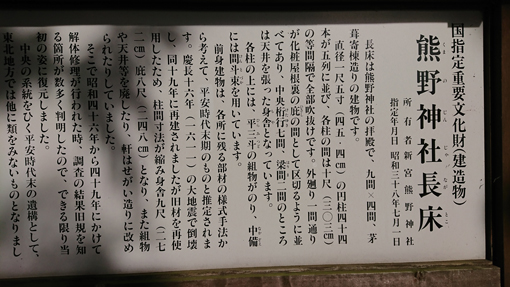 国指定重要文化財(建造物)
熊野神社長床
所有者 新宮熊野神社
指定年月日 昭和三十八年七月一日
長床は熊野神社の拝殿で、九間、四間、茅
葺寄棟造りの建物です。
直径一尺五寸(四五・四㎝)の円柱四十四
本が五列に並び、各柱の間は十尺(三〇三㎝)
の等間隔で全部吹抜けです。外廻り一間通り
が化粧屋根裏の庇の間として区切るように並
べてあり、中央桁行七間、梁間二間のところ
は天井を張った身舎となっています。
各柱の上には、平三斗の組物がのり、中備
には間斗束を用いています。
前身建物は、各所に残る部材の様式手法か
ら考えて、平安時代末期のものと推定されま
す。慶長十六年(一六一一)の大地震で倒壊
し、同十九年に再建されましたが旧材を再使
用したため、柱間寸法が縮み身舎九尺(二七
二㎝)庇八尺(二四八㎝)となり、また組物
や天井等を廃したり、軒はせがい造りに改め
られたりしていました。
そこで昭和四十六年から四十九年にかけて
解体修理が行われた時、調査の結果旧規を知
る箇所が数多く判明したので、できる限り当
初の姿に復元しました。
中央の系統をひく平安時代末の遺構として、
東北地方では他に類をみないものとなりまし